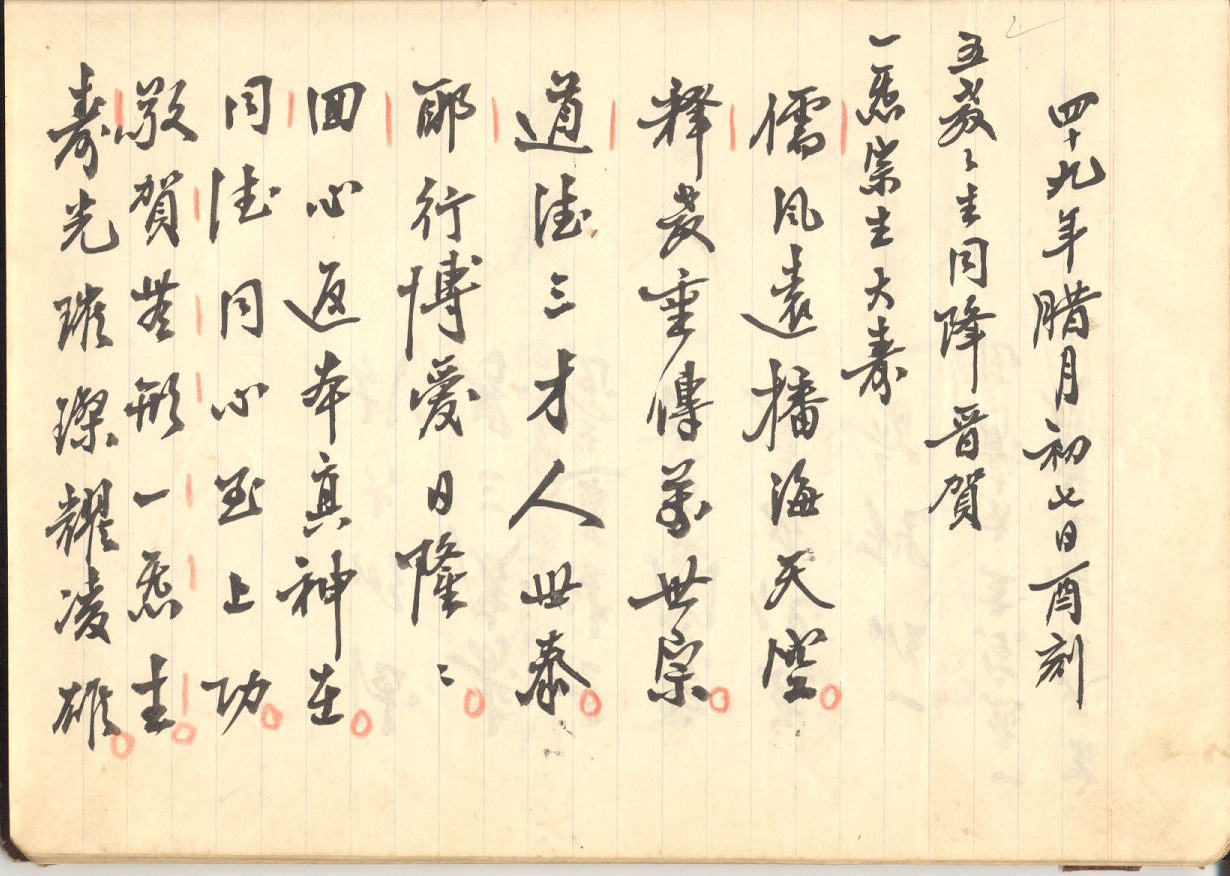 四十九年腊月初七日酉刻
五教主同降晋賀
一炁宗主大寿
儒風遠播海天空
釋教重傳萬世宗
道德三才人世泰
耶行博愛日隆〻
回心返本真神在
同德同心至上功
敬賀無形一炁主
壽光璀璨耀凌雄